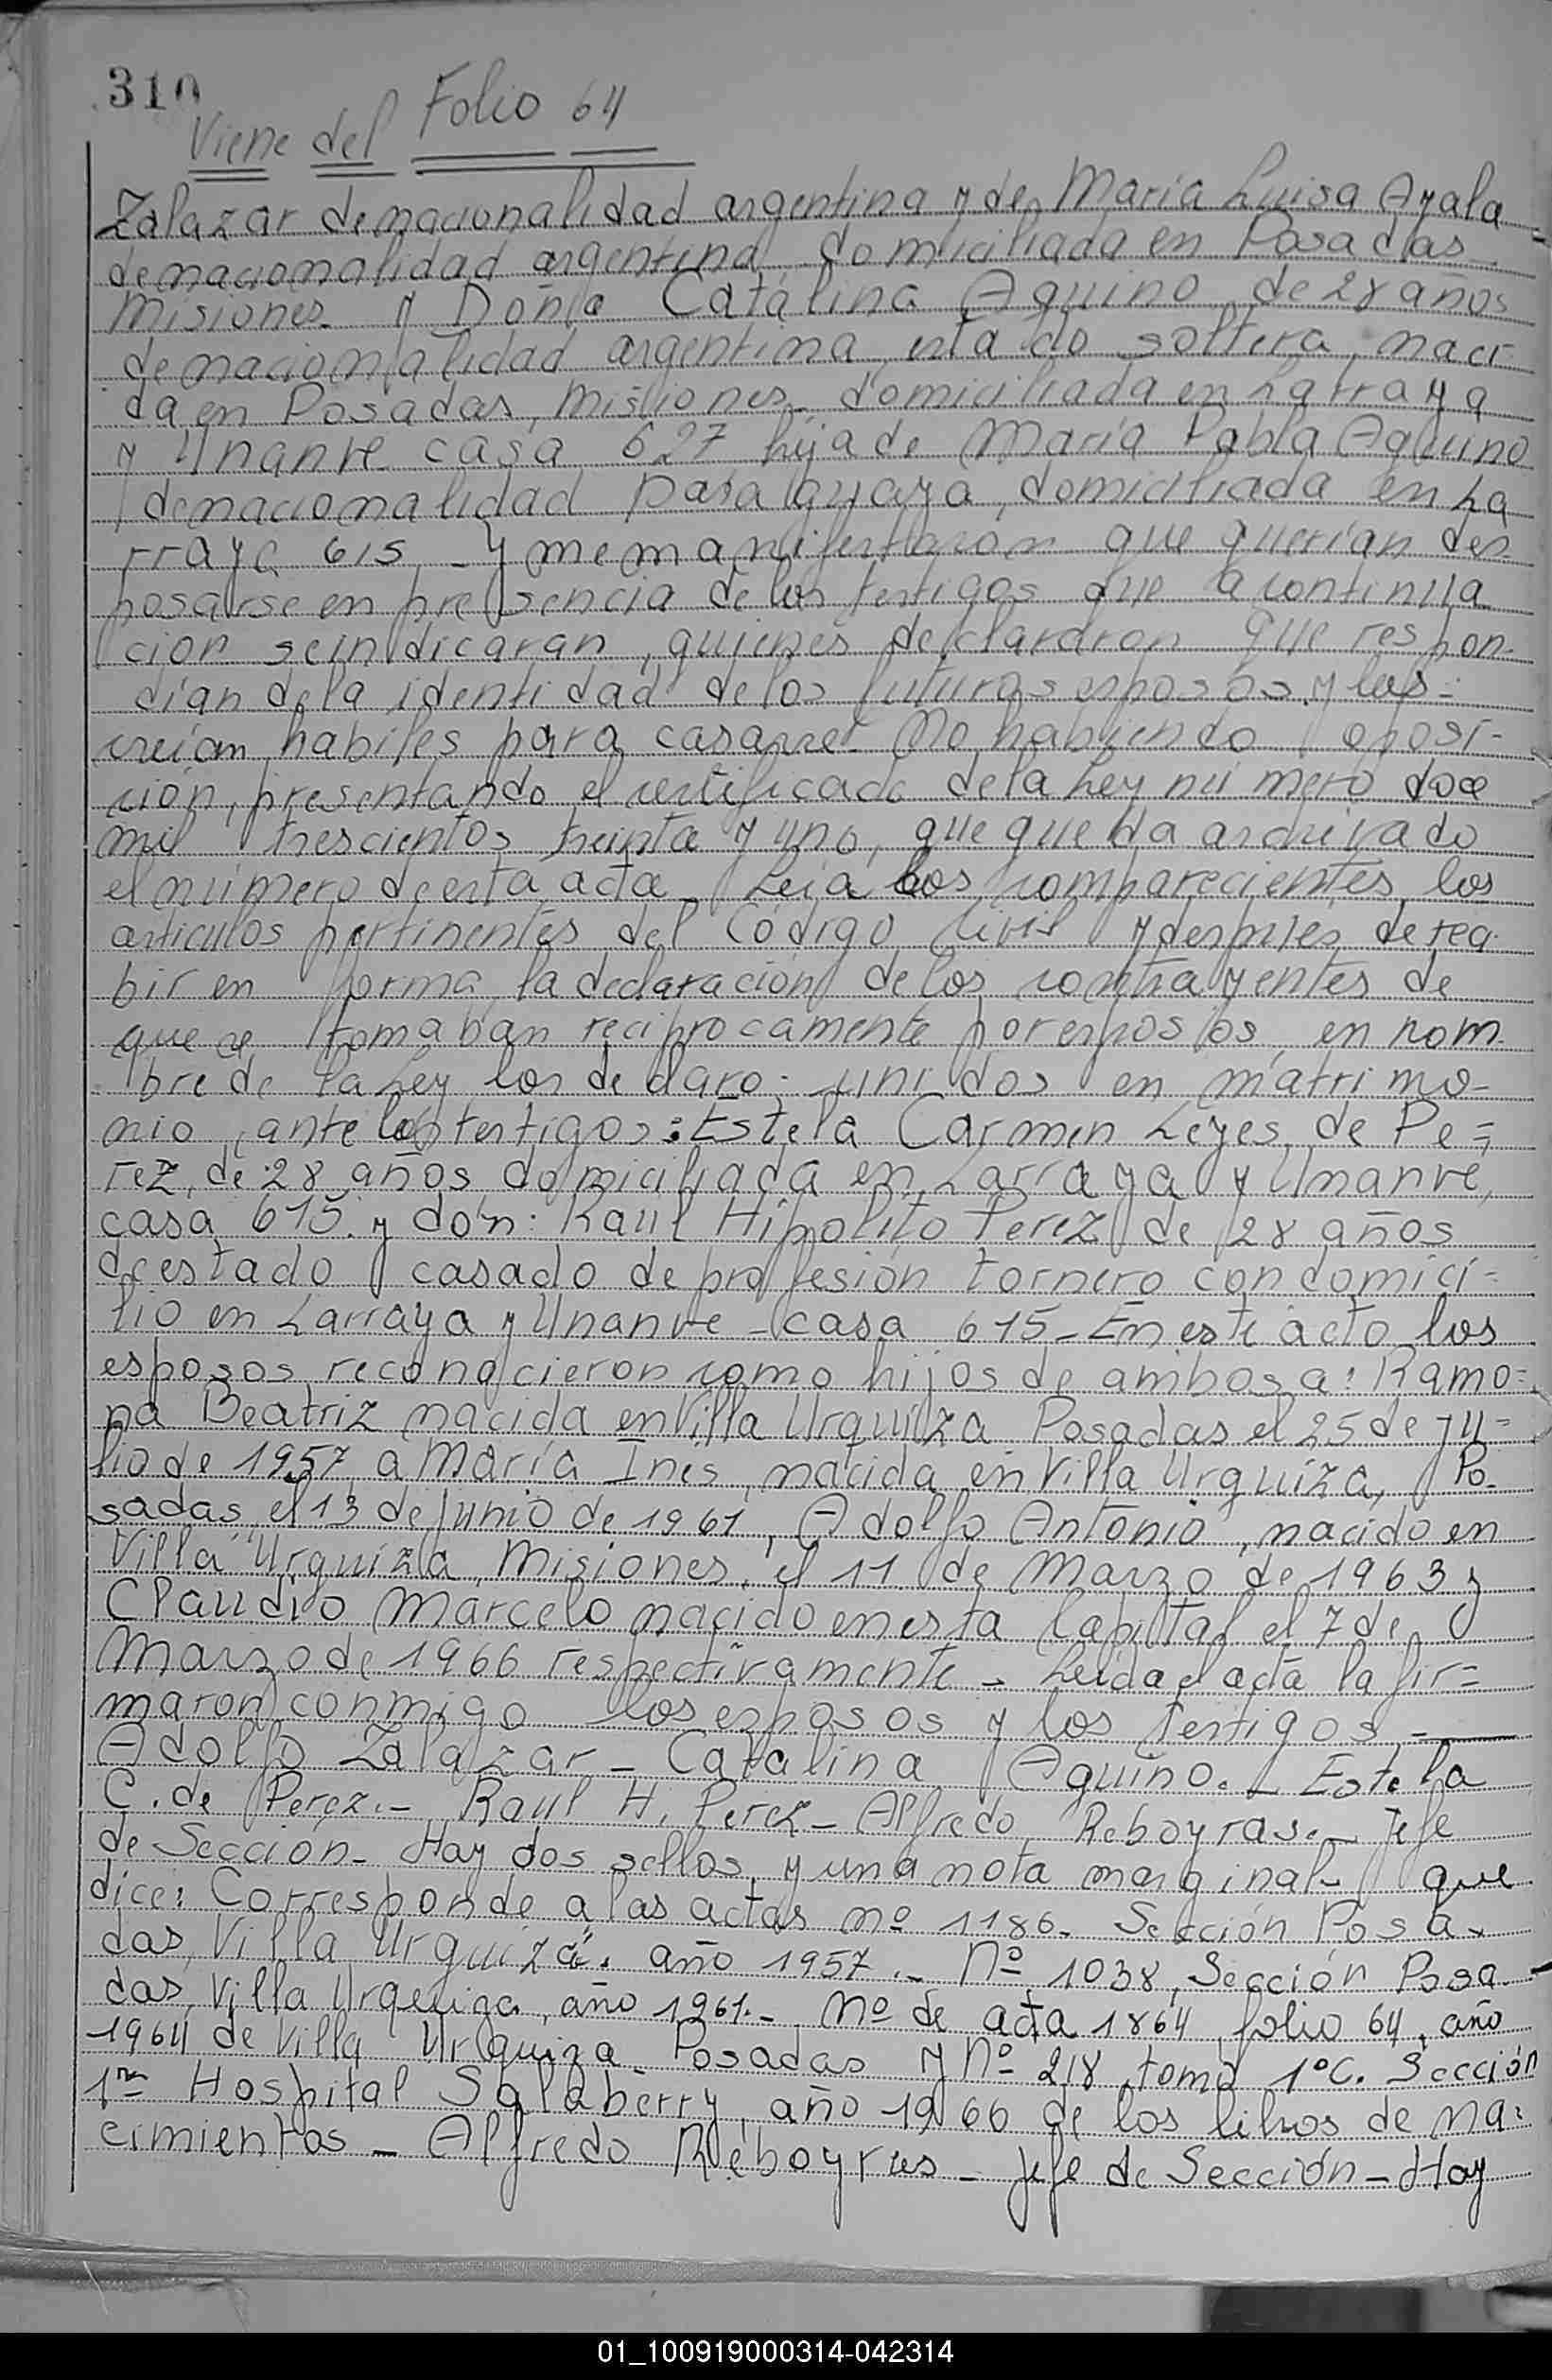 310
Viene del Folio 64
Zalazar de nacionalidad argentina y de Maria Luisa Ayala
de nacionalidad argentina, domiciliada en Posadas
Misiones y Doña Catalina Aquino, de 28 años
de nacionalidad argentina, estado soltera, naci-
da en Posadas, Misiones, domiciliada en Larraya
y Unanve casa 627 hija de María Pabla Aquino
de nacionalidad paraguaya, domiciliada en La
rraya 615 - y me manifestaron que querían des-
posarse en presencia de los testigos que a continua
ción se indicaran, quienes declararon que respon-
dían de la identidad de los futuros esposos y los-
creían habiles para casarse. No habiendo oposi-
ción, presentando el certificado de la Ley número doce
mil trescientos treinta y uno, que queda archivado
el número de esta acta. Leí a los comparecientes los
articulos pertinentes del Código Civil y después de reci-
bir en forma la declaración de los contrayentes de
que se tomaban reciprocamente por esposos, en nom-
bre de la Ley los declaro; unidos en matrimo-
nio, ante los testigos: Estela Carmen Leyes de Pe=
rez, de 28 años, domiciliada en Larraya y Unanve,
casa 615. y don: Raul Hipolito Perez de 28 años
de estado casado de profesión tornero con domici=
lio en Larraya y Unanve - casa 615 - En este acto los
esposos reconocieron como hijos de ambos a: Ramo=
na Beatriz nacida en Villa Urquiza Posadas el 25 de ju=
lio de 1957, a María Ines, nacida en Villa Urquiza, Po-
sadas, el 13 de junio de 1961, Adolfo Antonio, nacido en
Villa Urquiza, Misiones, el 11 de Marzo de 1963 y
Claudio Marcelo nacido en esta Capital el 7 de
Marzo de 1966 respectivamente - Leida el acta la fir=
maron conmigo los esposos y los testigos -
Adolfo Zalazar - Catalina Aquino. - Estela
C. de Perez. - Raul H. Perez - Alfredo Reboyras. - Jefe
de Sección - Hay dos sellos, y una nota marginal que
dice: Corresponde a las actas nº 1186 - Sección Posa-
das, Villa Urquiza". año 1957. - Nº 1038, Sección Posa-
das, Villa Urquiza, año 1961. - Nº de acta 1864, folio 64, año
1964 de Villa Urquiza. Posadas y Nº 218, tomo 1º C. Sección
1ra Hospital Salaberry, año 1966 de los libros de na=
cimientos - Alfredo Reboyras - Jefe de Sección - Hay
01_100919000314-042314